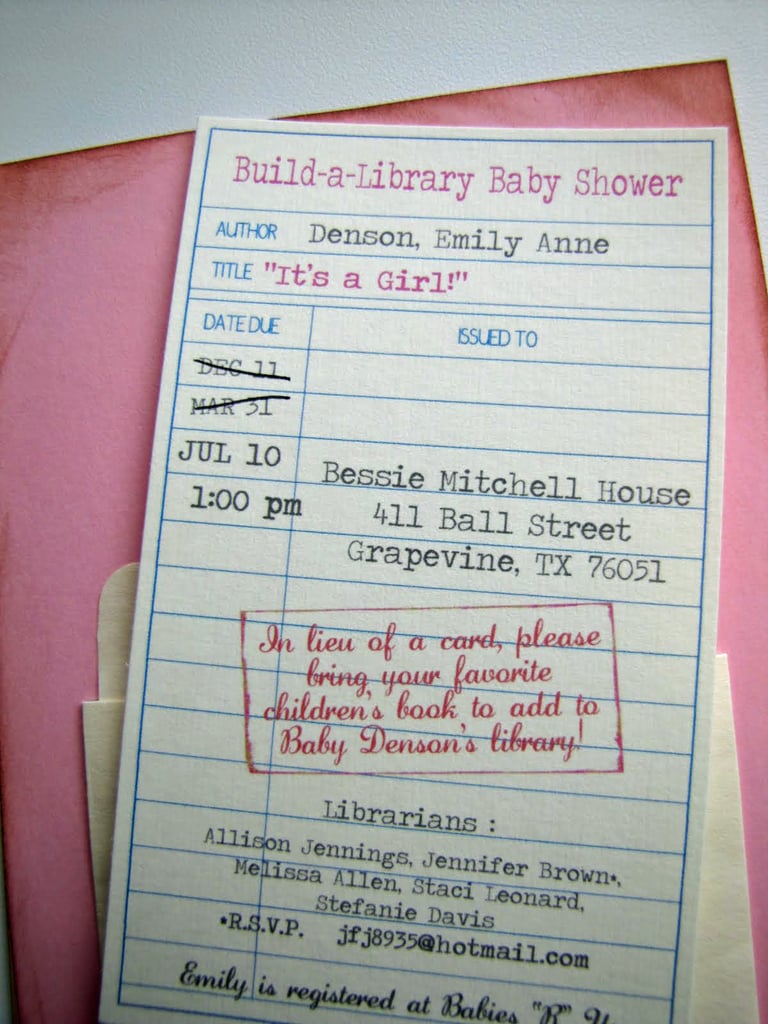 Build-a-Library Baby Shower
AUTHOR Denson, Emily Anne
TITLE "It's a Girl!"
DATE DUE ISSUED TO
DEC 11
MAR 31
JUL 10
1:00 pm
Bessie Mitchell House
411 Ball Street
Grapevine, TX 76051
In lieu of a card, please
bring your favorite
children's book to add to
Baby Denson's library!
Librarians :
Allison Jennings, Jennifer Brown*,
Melissa Allen, Staci Leonard,
Stefanie Davis
*R.S.V.P. jfj8935@hotmail.com
Emily is registered at Babies "R" U